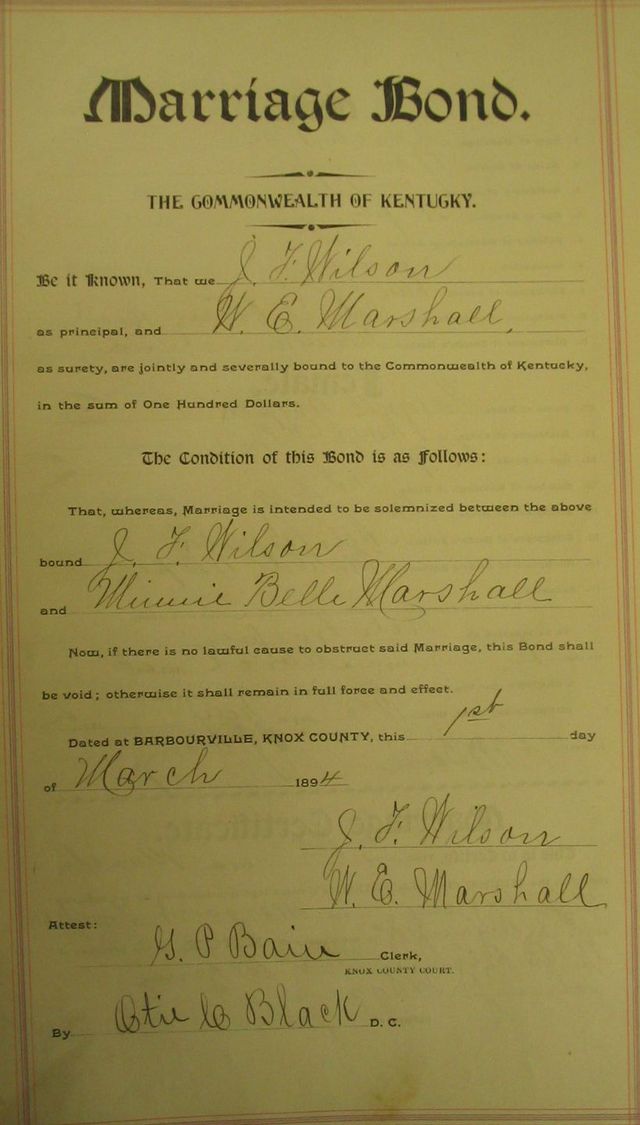 Marriage Bond.
THE COMMONWEALTH OF KENTUCKY.
Be it Known, That we J. F. Wilson
as principal, and W. E. Marshall,
as surety, are jointly and severally bound to the Commonwealth of Kentucky,
in the sum of One Hundred Dollars.
The Condition of this Bond is as Follows:
That, whereas, Marriage is intended to be solemnized between the above
bound J. F. Wilson
and Minnie Belle Marshall
Now, if there is no lawful cause to obstruct said Marriage, this Bond shall
be void; otherwise it shall remain in full force and effect.
Dated at BARBOURVILLE, KNOX COUNTY, this 1st day
of March 1894
J. F. Wilson
W. E. Marshall
Attest:
G. P Bain Clerk,
KNOX COUNTY COURT.
By Otie C Black D. C.